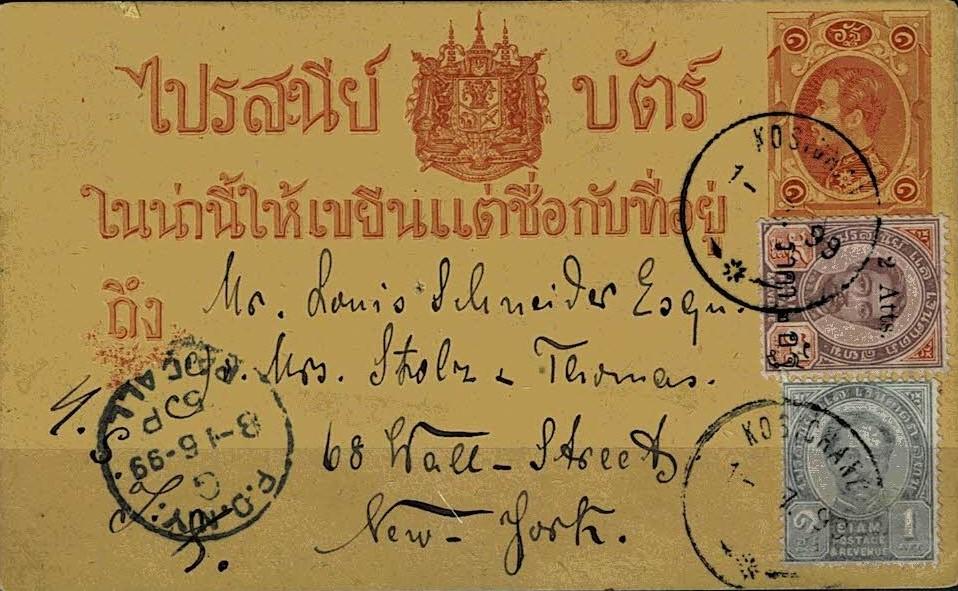 ไปรสะนีย์ บัตร์
ในน่านี้ให้เขยีนแต่ชื่อกับที่อยู่
ถึง
Mr. Louis Schneider Esqu.
Mrs. Stolz & Thomas.
68 Wall-Street
New-York.
2 Atts.
ราคา
SIAM
POSTAGE
& REVENUE
๑ 1
KOSICHANG
99
KOSICHANG
P.O. N.Y.
8-15-99
5 P